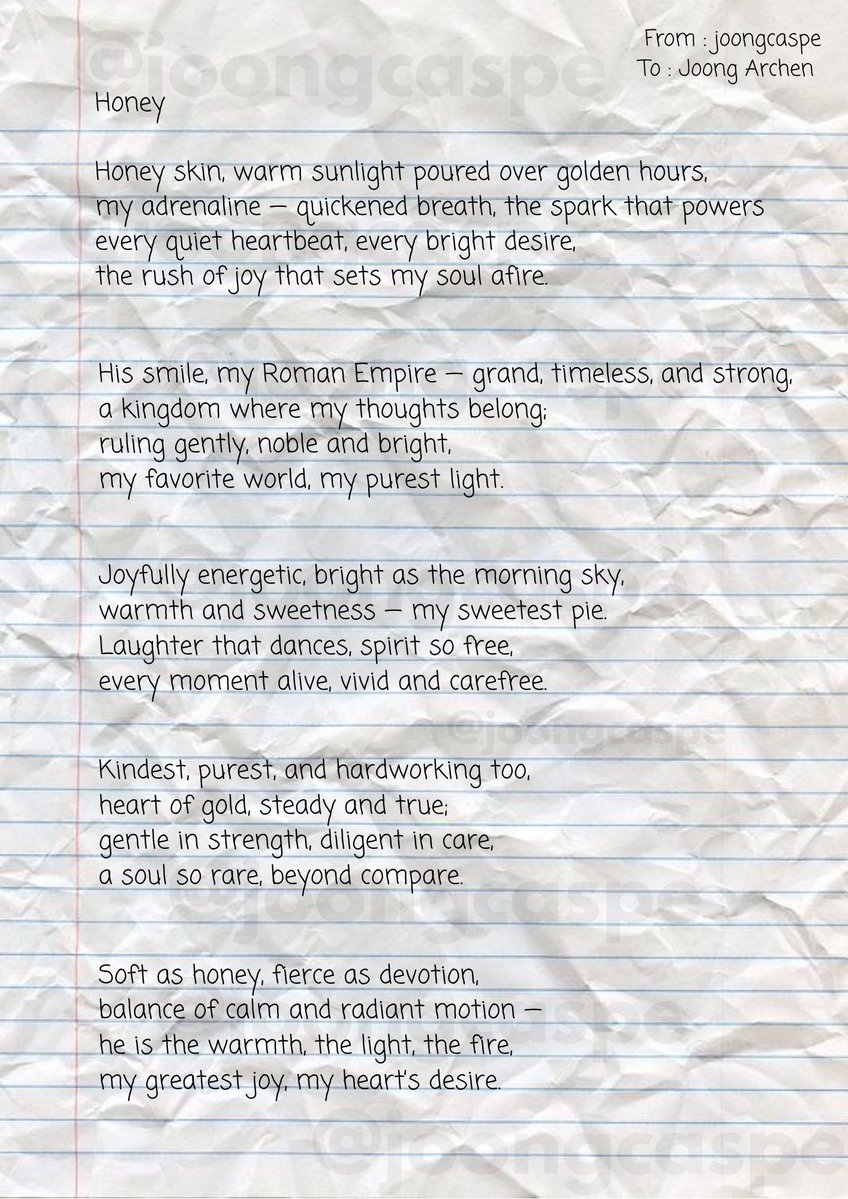 @joongcaspe
From : joongcaspe
To : Joong Archen
Honey
Honey skin, warm sunlight poured over golden hours,
my adrenaline – quickened breath, the spark that powers
every quiet heartbeat, every bright desire,
the rush of joy that sets my soul afire.
His smile, my Roman Empire – grand, timeless, and strong,
a kingdom where my thoughts belong;
ruling gently, noble and bright,
my favorite world, my purest light.
Joyfully energetic, bright as the morning sky,
warmth and sweetness – my sweetest pie.
Laughter that dances, spirit so free,
every moment alive, vivid and carefree.
@joongcaspe
Kindest, purest, and hardworking too,
heart of gold, steady and true;
gentle in strength, diligent in care,
a soul so rare, beyond compare.
@joongcaspe
Soft as honey, fierce as devotion,
balance of calm and radiant motion –
@joongcaspe
he is the warmth, the light, the fire,
my greatest joy, my heart's desire.
@joongcaspe